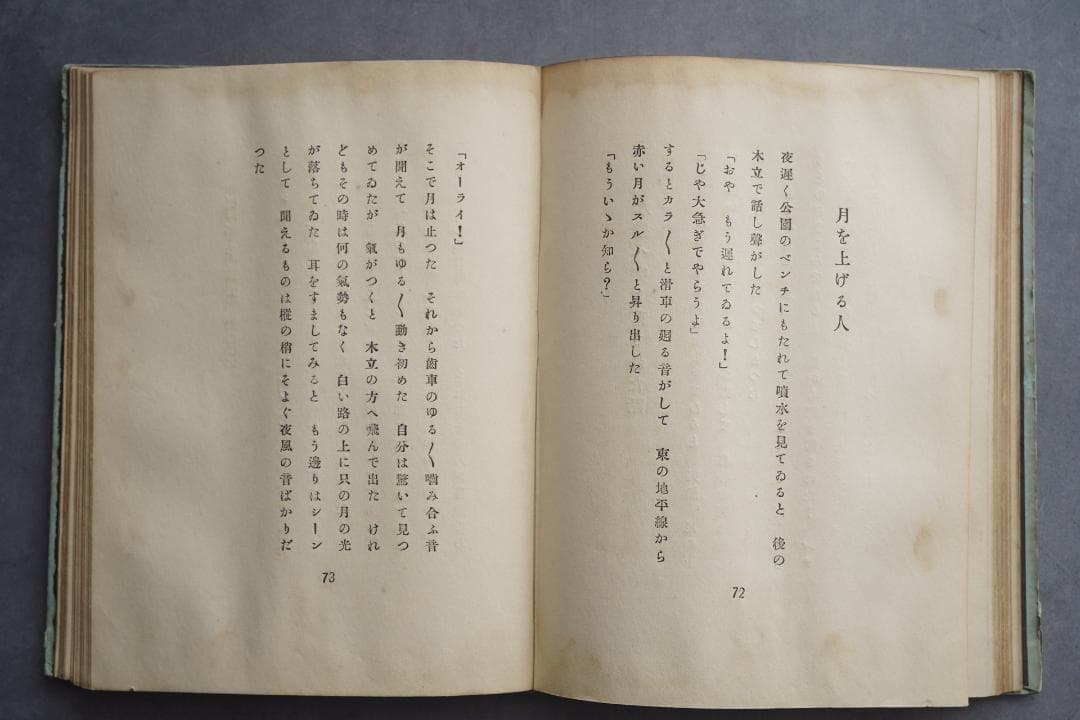 月を上げる人
夜遲く公園のベンチにもたれて噴水を見てゐると　後の
木立で話し聲がした
「おや　もう遲れてゐるよ！」
「じや大急ぎでやらうよ」
するとカラ〳〵と滑車の廻る音がして　東の地平線から
赤い月がスル〳〵と昇り出した
「もういゝか知ら？」
72
「オーライ！」
そこで月は止つた　それから齒車のゆる〳〵嚙み合ふ音
が聞えて　月もゆる〳〵動き初めた　自分は驚いて見つ
めてゐたが　氣がつくと　木立の方へ飛んで出た　けれ
どもその時は何の氣勢もなく　白い路の上に只の月の光
が落ちてゐた　耳をすましてみると　もう邊りはシーン
として　聞えるものは樅の梢にそよぐ夜風の音ばかりだ
つた
73